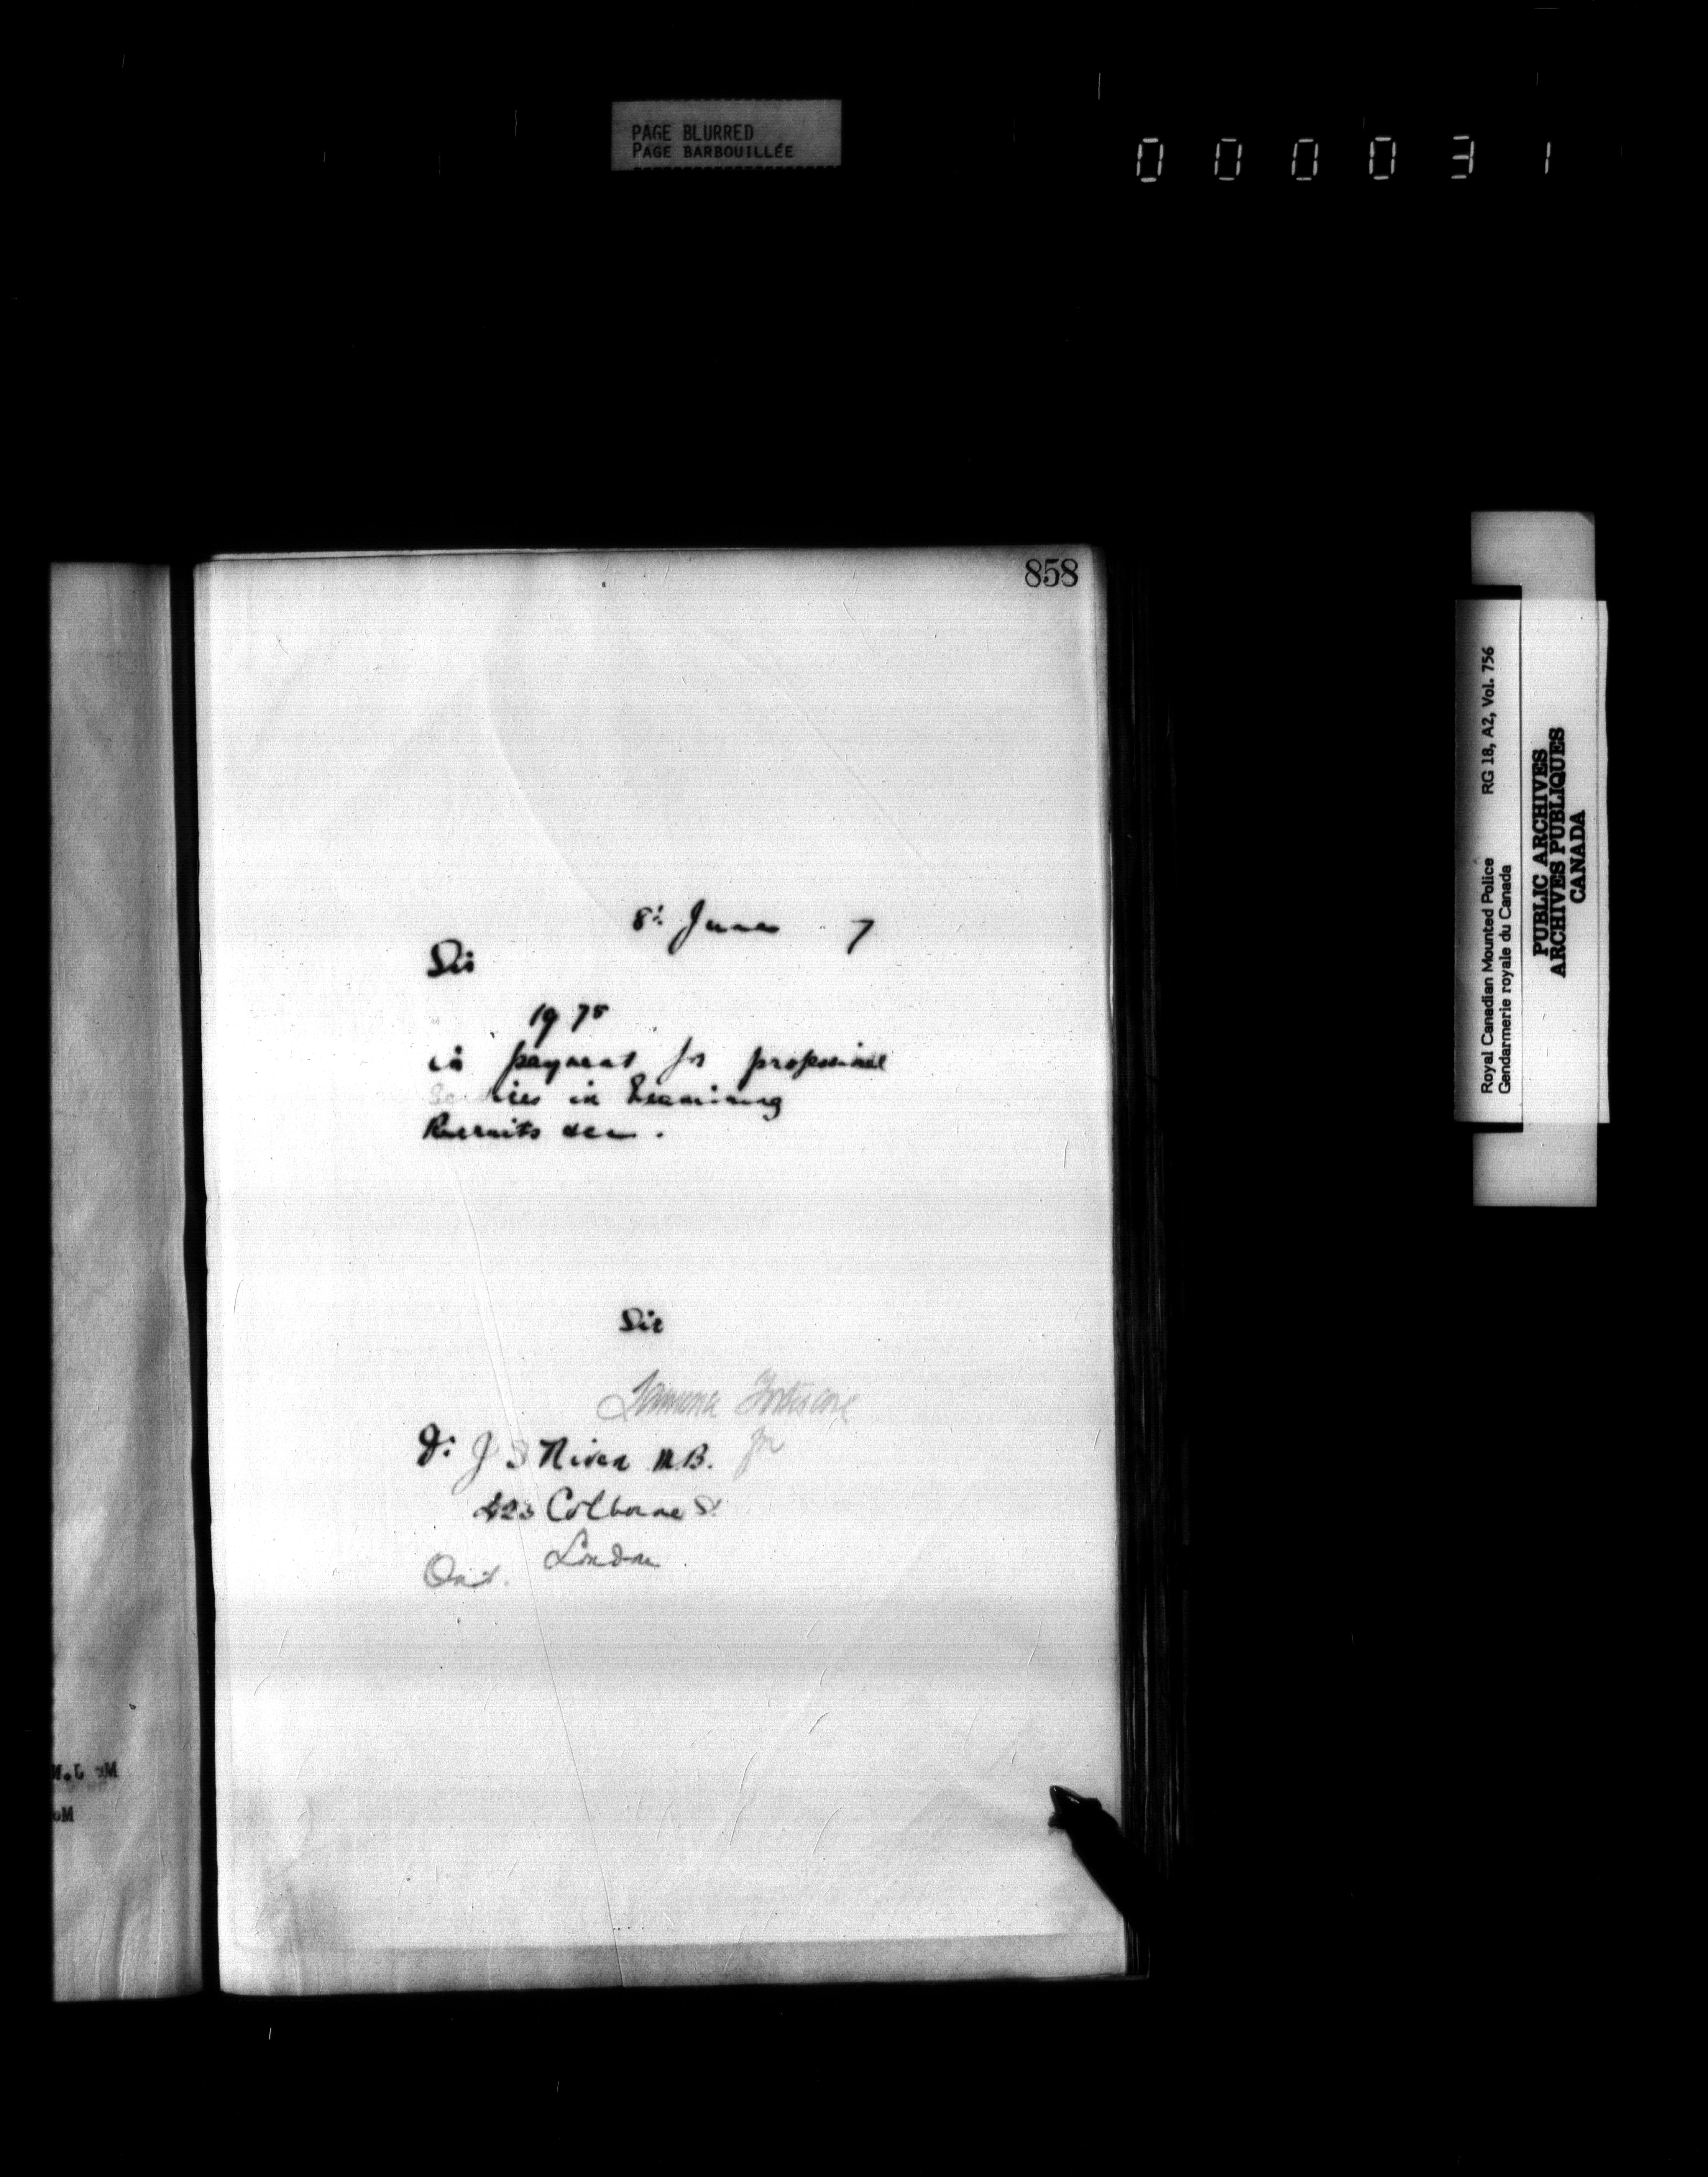 PAGE BLURRED
PAGE BARBOUILLÉE
000031
858
8th June 7
Sir
19 75
in payment for professional
Services in Examining
Recruits &c
Sir
Fortescue
for
Dr J S Niven M.B.
423 Colborne St
London
Ont.
Royal Canadian Mounted Police RG 18, A2, Vol. 756
Gendarmerie royale du Canada
PUBLIC ARCHIVES
ARCHIVES PUBLIQUES
CANADA